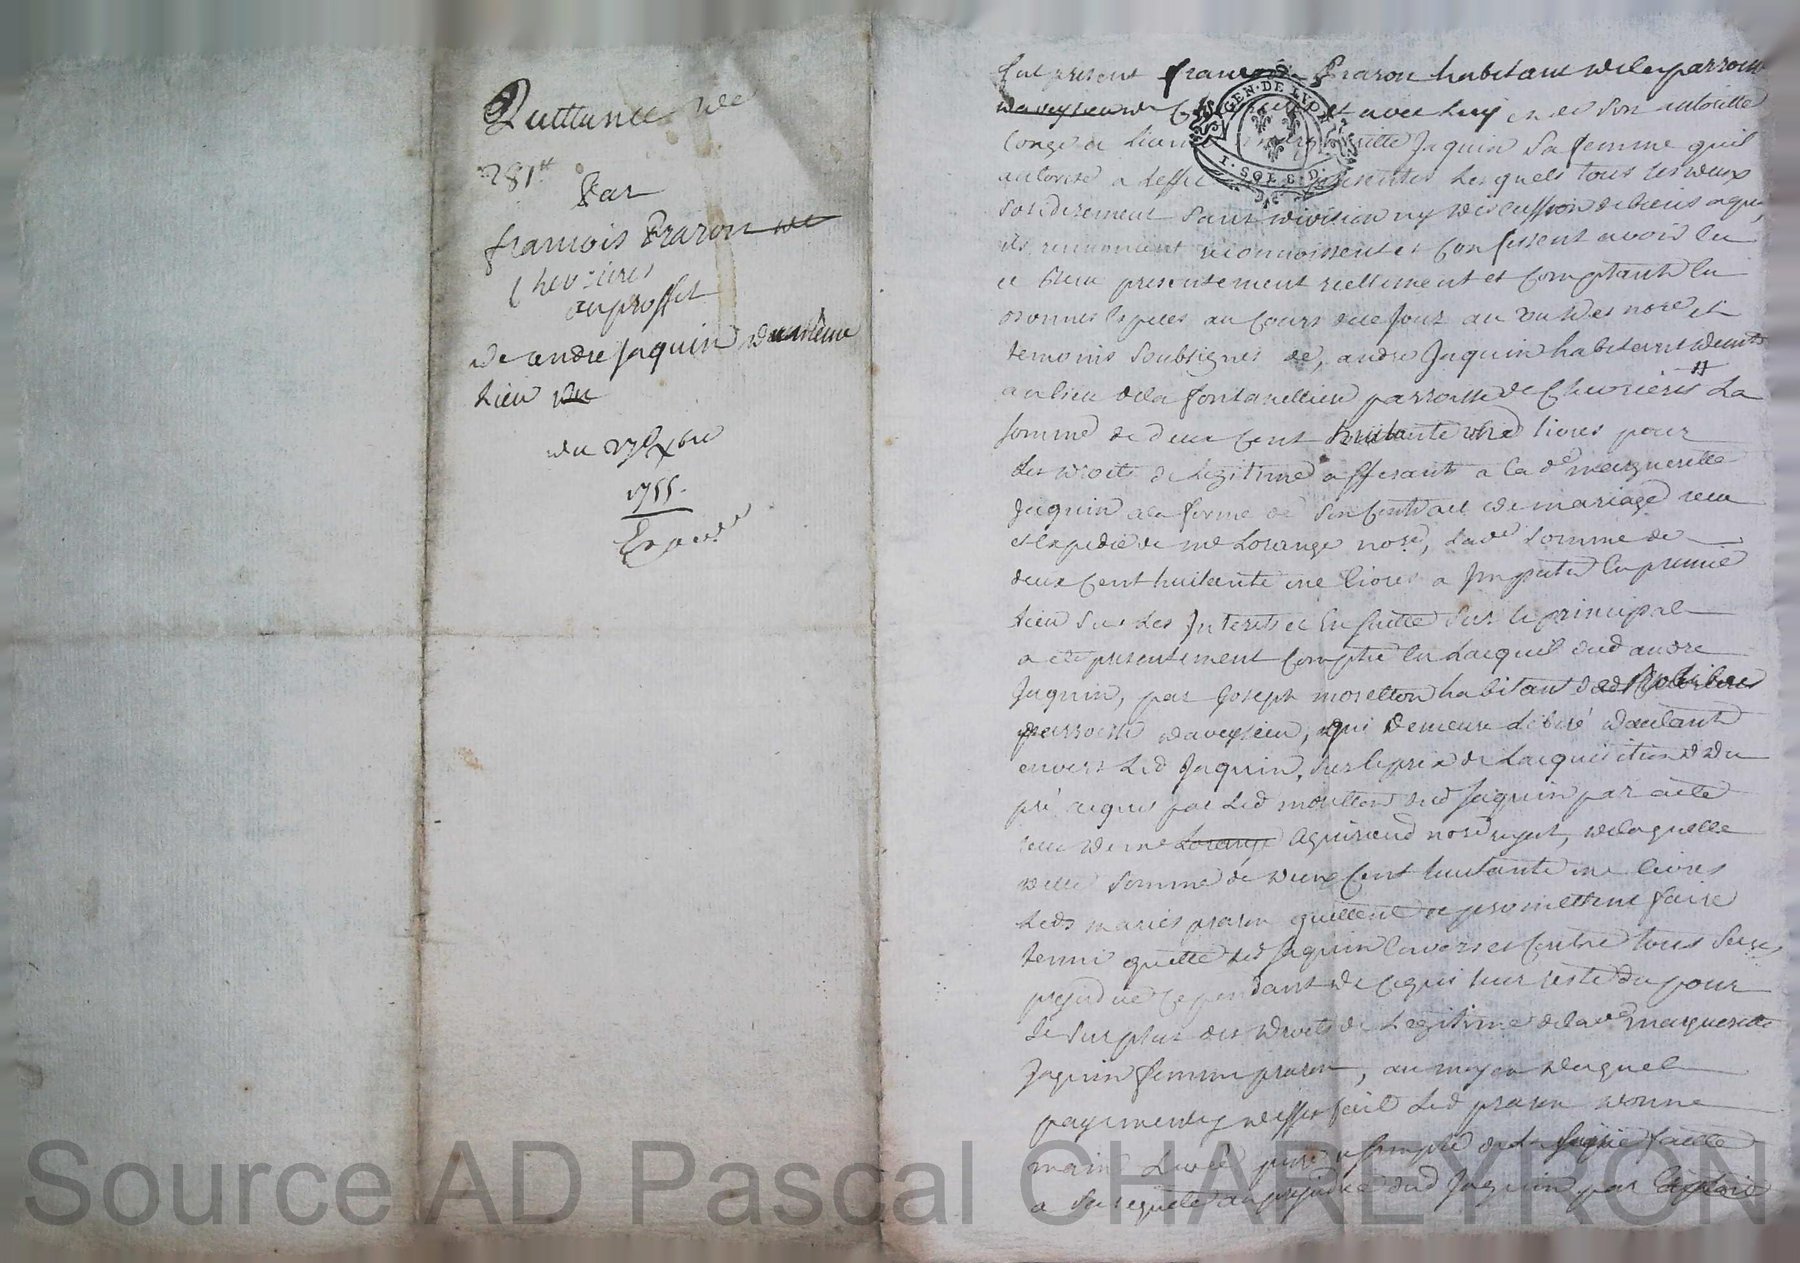 Quittance de
281tt
Par
francois Praron de
Chevrieres
au proffit
De andre Jaquin du meme
Lieu du
du 27 Xbre
1755.
Exp
fut present francois Praron habitant de la parroisse
et avec luy et de son autorité
congé et licence Jaquin sa femme quil
autorise a leffet presentes lesquels tous les deux
solidairement sans division ny discussion de biens a quoy
ils renoncent reconnoissent et confessent avoir eu
et recu presentement reellement et comptant en
bonnes especes au cours de ce jour au vu des nore et
temoins soubsignes de, andre Jaquin habitant
au lieu de la fontanelliere parroisse de Chevrieres tt La
somme de deux cent huitante une livres pour
les droits de Legitime afferants a la de marguerite
Jaquin a la forme de son contract de mariage recu
et expedié de me Lorange nore, lade somme de
deux cent huitante une livres a Imputer en premier
lieu sur les Interets et en suitte sur le principal
a eté presentement comptée en Lacquit dud andre
Jaquin, par Joseph moretton habitant
parroisse daveyzieu, qui demeure libéré dautant
envers Led Jaquin, sur le prix de Lacquisition du
pré acquis par Led moretton dud Jaquin par acte
recu de me Lorange Aguiraud nore royal, de laquelle
ditte somme de deux cent huitante une livres
Leds mariés praron quittent et promettent faire
tenir quitte Led Jaquin envers et contre tous sans
prejudice cependant de ce qui leur reste du pour
le surplus des droits de Legitime de la de marguerite
Jaquin femme praron, au moyen duquel
payement Led praron donne
main Levée pure et simple de la saisie faitte
a sa requete au prejudice dud Jaquin par exploit
GEN. DE LYON
1. SOL 8. D.
Source AD Pascal CHAREYRON